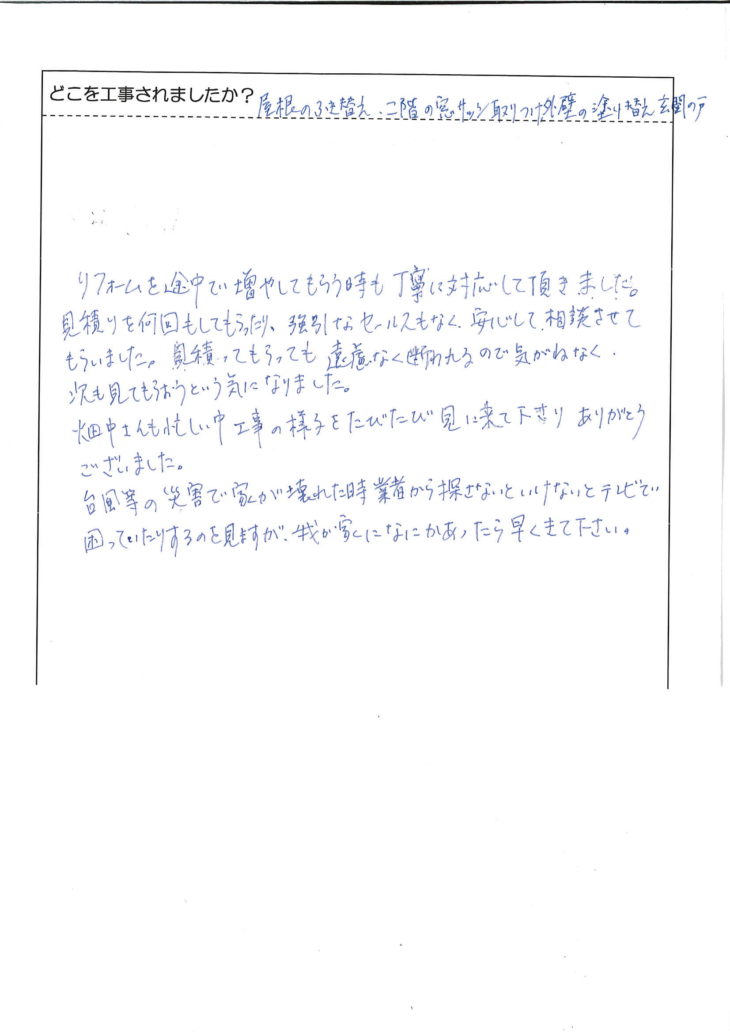 どこを工事されましたか？屋根のふき替え、二階の窓サッシ取りつけ外壁の塗り替え玄関の戸
リフォームを途中で増やしてもらう時も丁寧に対応して頂きました。
見積りを何回もしてもらったり、強引なセールスもなく、安心して相談させて
もらいました。見積ってもらっても遠慮なく断われるので気がねなく、
次も見てもらおうという気になりました。
畑中さんも忙しい中工事の様子をたびたび見に来て下さり ありがとう
ございました。
台風等の災害で家が壊れた時業者から探さないといけないとテレビで
困っていたりするのを見ますが、我が家になにかあったら早くきて下さい。